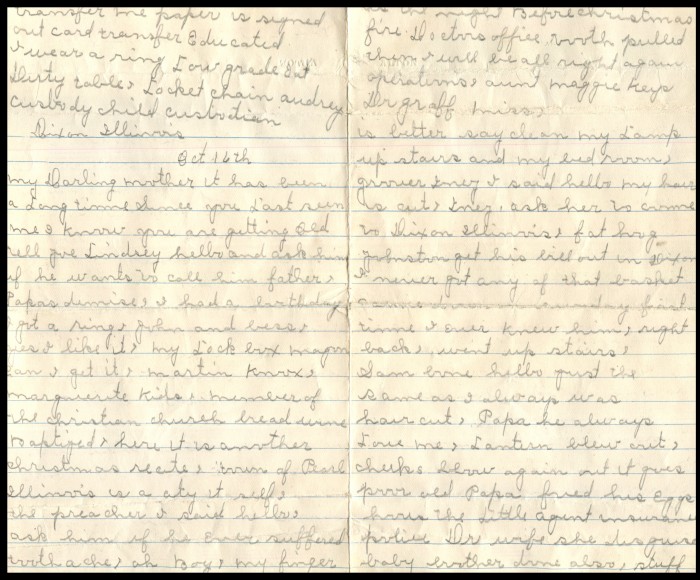 transfer me paper is signed
out card transfer Educated
I wear a ring Low grade Out
Dirty table, Locket chain audrey
Custody child custodian
Dixon Illinois
Oct 16th
my Darling mother it has been
a Long time Since you Last seen
me I know you are getting Old
tell Joe Lindsey hello and ask him
if he wants to call him father,
Papas demise, I had a birthday
I got a ring, John and bess,
yes I like it, my Lock box
I get it, martin Knox,
marguerite Kile, member of
the christian church bread wine
Baptized, here it is another
christmas recite, town of Pearl
Illinois is a city it self,
the preacher I said hello,
ask him if he Ever suffered
toothache, oh Boy, my finger
is the night Before christmas
fire Doctors office, tooth pulled
then I will be all right again
operations, aunt maggie Keys
Dr graff miss,
is better say clean my Lamp
up stairs and my bed room,
grover I said hello my hair
is cut, ask her to come
to Dixon Illinois, fat hog
Johnston get his bill out in Dixon
I never got any of that basket
first
time I Ever knew him, right
back, went up stairs,
Sam bone hello just the
same as I always was
hair cut, Papa he always
Love me, Lantern blew out,
cheeks blow again out it goes
poor old Papa fried his Eggs
the Little agent insurance
police Dr wife she disguise
baby brother done also, stuff